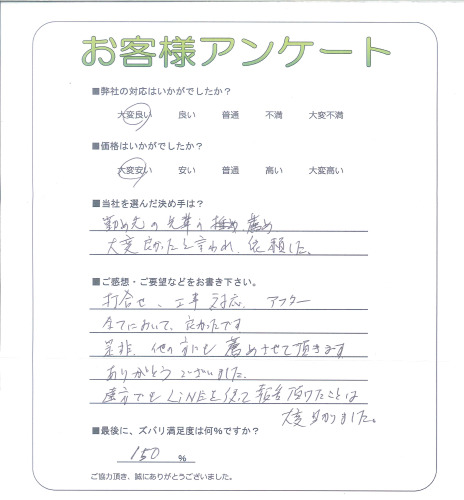 お客様アンケート
■弊社の対応はいかがでしたか？
大変良い 良い 普通 不満 大変不満
■価格はいかがでしたか？
大変安い 安い 普通 高い 大変高い
■当社を選んだ決め手は？
勤め先の先輩の 薦め
大変良かったと言われ、依頼した。
■ご感想・ご要望などをお書き下さい。
打合せ、工事対応、アフター
全てにおいて、良かったです
是非、他の方にも薦めさせて頂きます
ありがとうございました。
遠方でもLINEを使って報告頂けたことは
大変助かりました。
■最後に、ズバリ満足度は何％ですか？
150 ％
ご協力頂き、誠にありがとうございました。